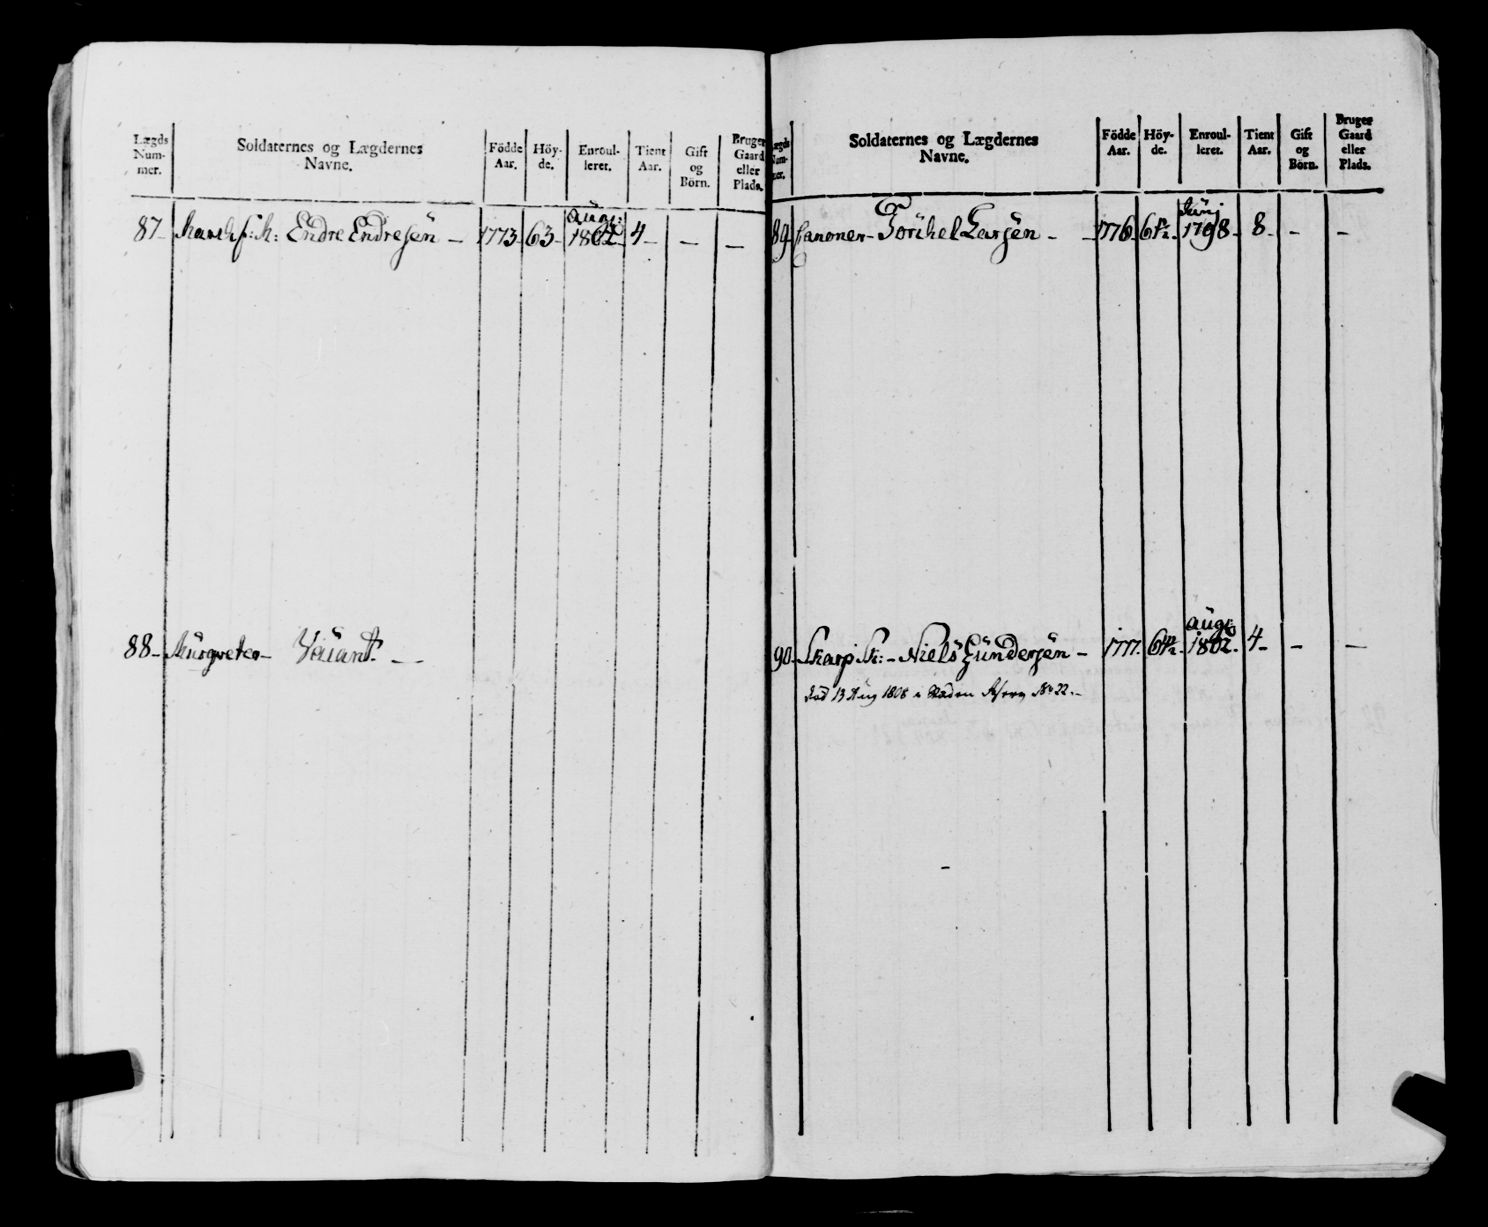 Lægds Num- mer.
Soldaternes og Lægdernes Navne.
Födde Aar.
Höy- de.
Enroul- leret.
Tient Aar.
Gift og Börn.
Bruger Gaard eller Plads.
87- Endre Endresen - 1773- 63- Aug: 1802- 4- - -
88- Musqveter- Vacant. - -
Lægds Num- mer.
Soldaternes og Lægdernes Navne.
Födde Aar.
Höy- de.
Enroul- leret.
Tient Aar.
Gift og Börn.
Bruger Gaard eller Plads.
89- Canoner- Törikel Larsen - - 1776- Junj 1798- 8- - -
90- Skarp Sk: - Niels Gundersen - 1777- Aug: 1802- 4- - -
död 13 Aug 1808 i No 22. -